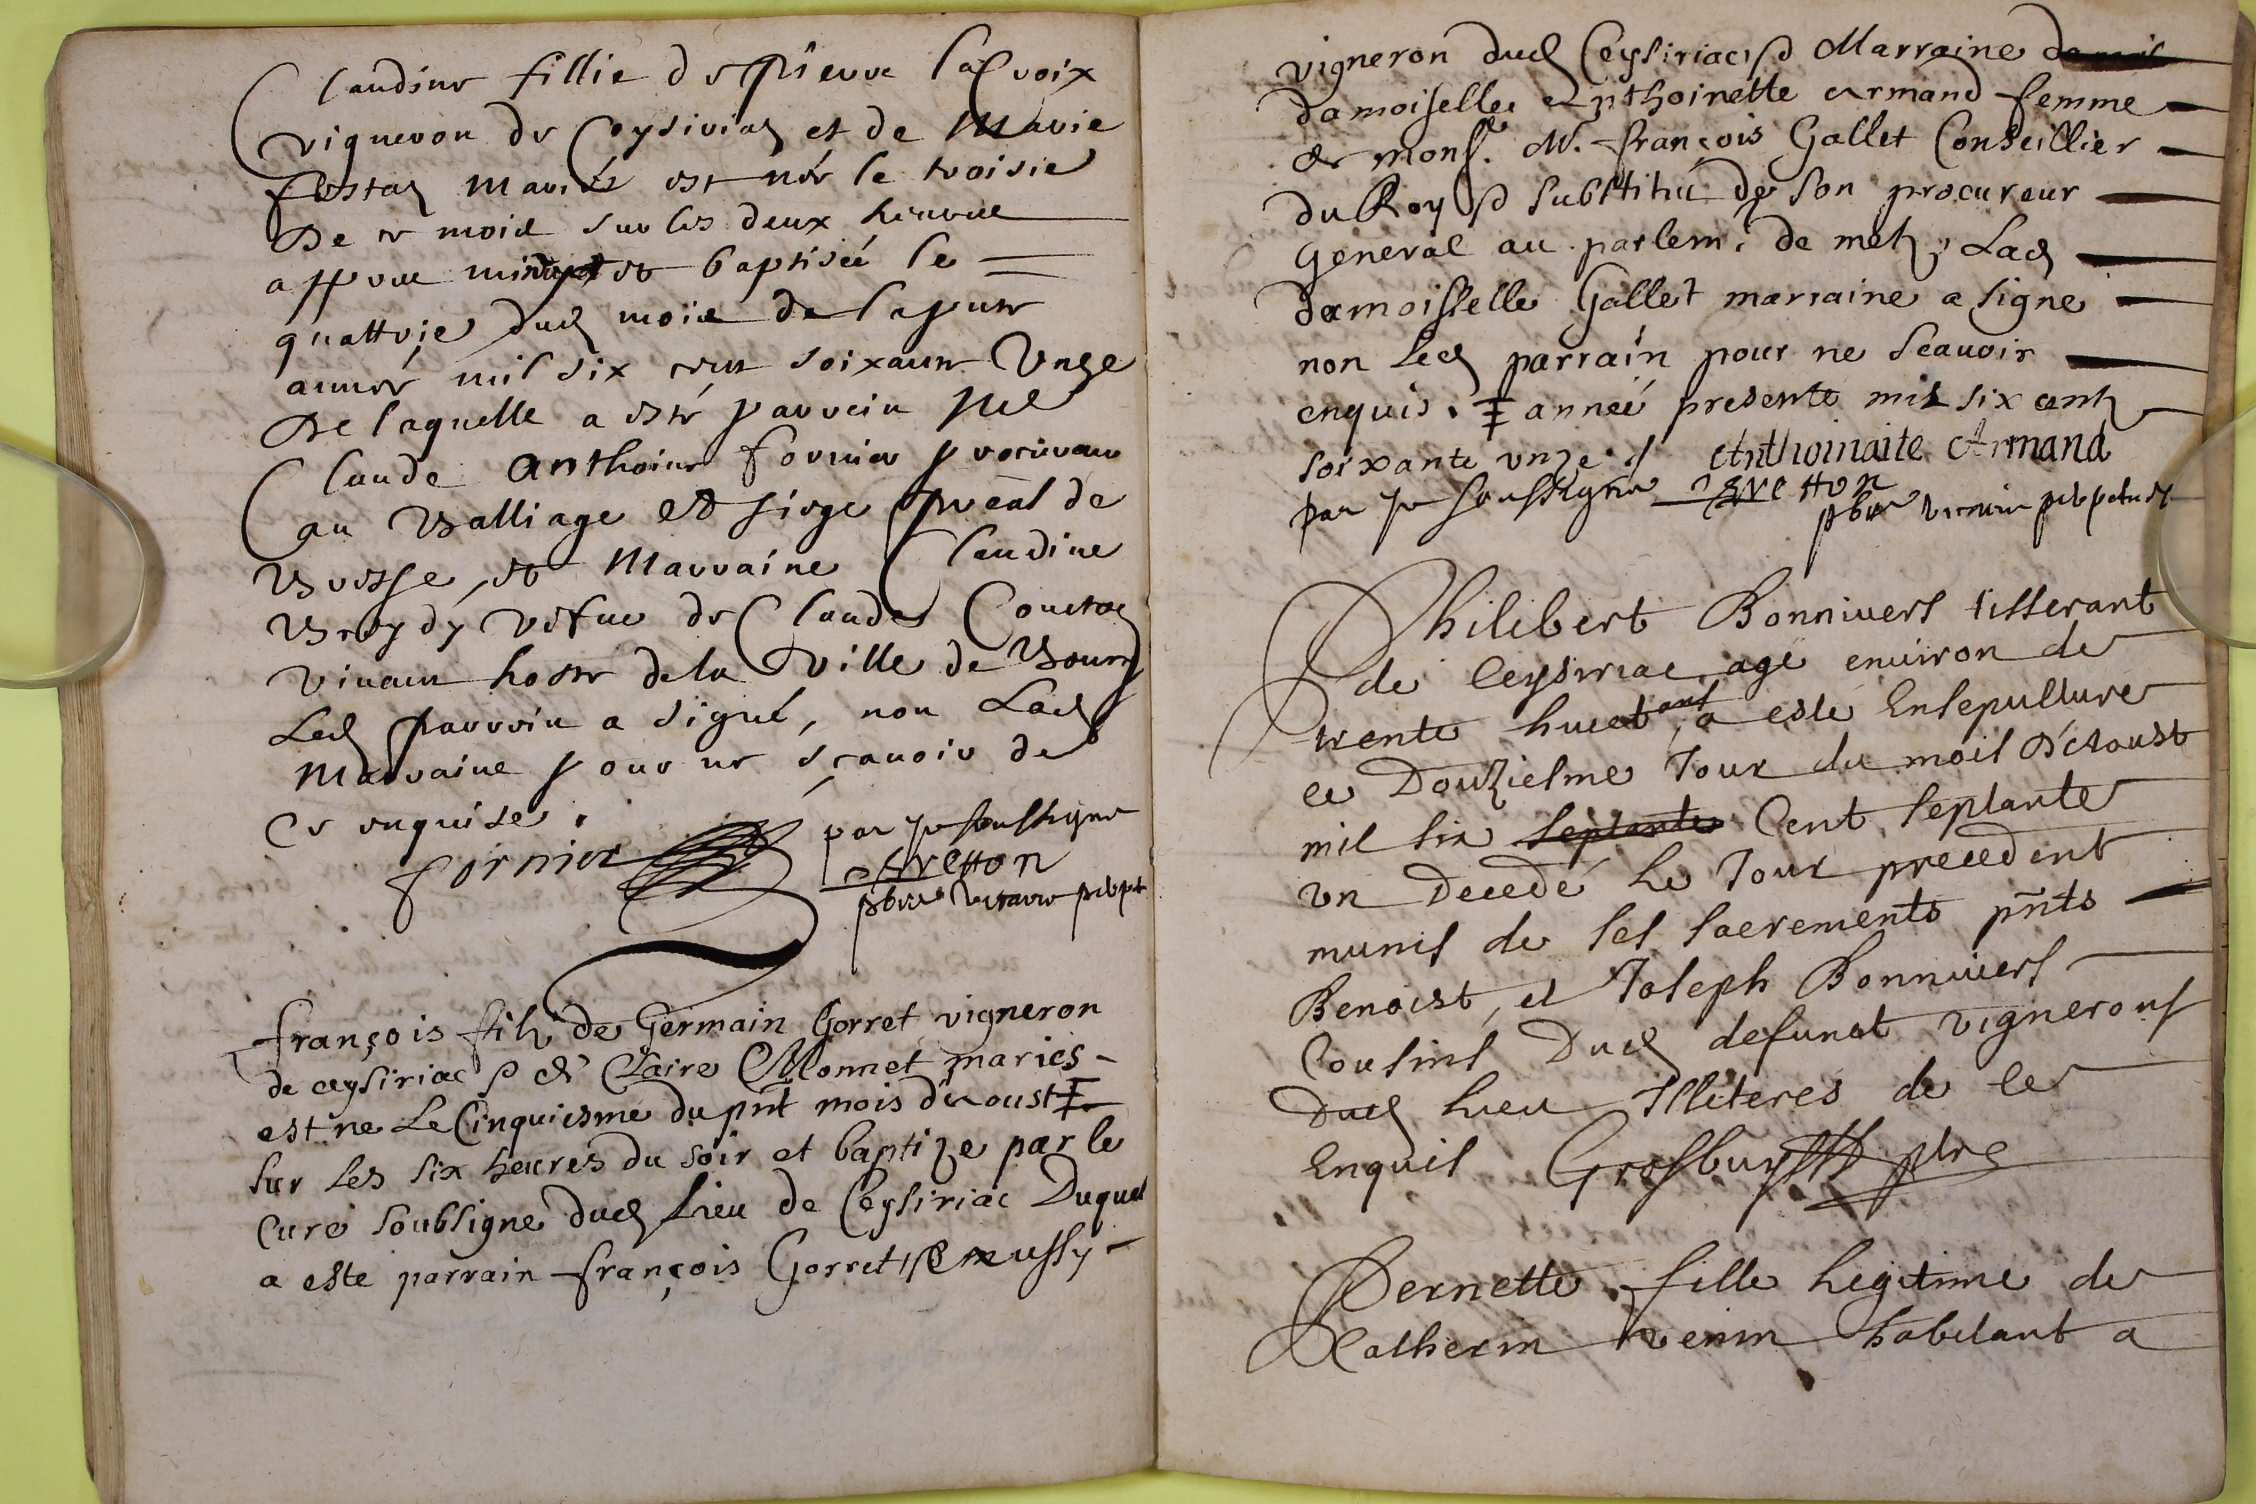 Claudine fillie de Pierre Lacroix
vigneron de Ceysiriaq et de Marie
festaq mariés est née le troisie
De ce moie sur les deux heurue
appres minuyt et baptisée le
quattrie dudq moie de la pnte
année mil six cent soixante Unze
De laquelle a este parrein Me
Claude Anthoine fornier procureur
au Balliage et siege preal de
Bresse, et Marraine Claudine
Breydy vefue de Claude Coustoz
vivant hoste de la Ville de Bourg
Ledq Parrein a signé, non Ladq
Marraine pour ne sçauoir de
Ce enquise.
fornier par je soussigne
Bretton
pbre vicaire perpet
françois filz de Germain Gorret vigneron
de ceysiriac & de Claire Monnet maries
est ne Le Cinquiesme du pnt mois d'aoust ‡
sur Les six heures du soir et baptize par le
Curé soubsigné dudq Lieu de Ceysiriac Duquel
a este parrain françois Gorret aussy
vigneron dudq Ceysiriac & Marraine
damoiselle Anthoinette Armand femme
de monsr. Mr. françois Gallet Conseillier
du Roy & substitut de son procureur
General au parlemt de metz, Ladq
damoisselle Gallet marraine a signe
non Ledq parrain pour ne scauoir
enquis. ‡ anneé presente mil six centz
soixante vnze. Anthoinaite Armand
par Je soussigne Bretton
pbre vicaire perpetuel
Philibert Bonniuers tisserant
de Ceysiriac agé enuiron de
trente huict ans a esté Ensepulturé
ce Douziesme Jour du mois D'Aoust
mil six septante Cent septante
vn Decedé le Jour precedent
munis de ses sacrements pnts
Benoist, et Joseph Bonniuers
Cousins Dudq defunct vignerons
Dudq lieu Illiteres de ce
Enquis Grosbuys pbre
Pernette fille legitime de
Catherin venin habitant a